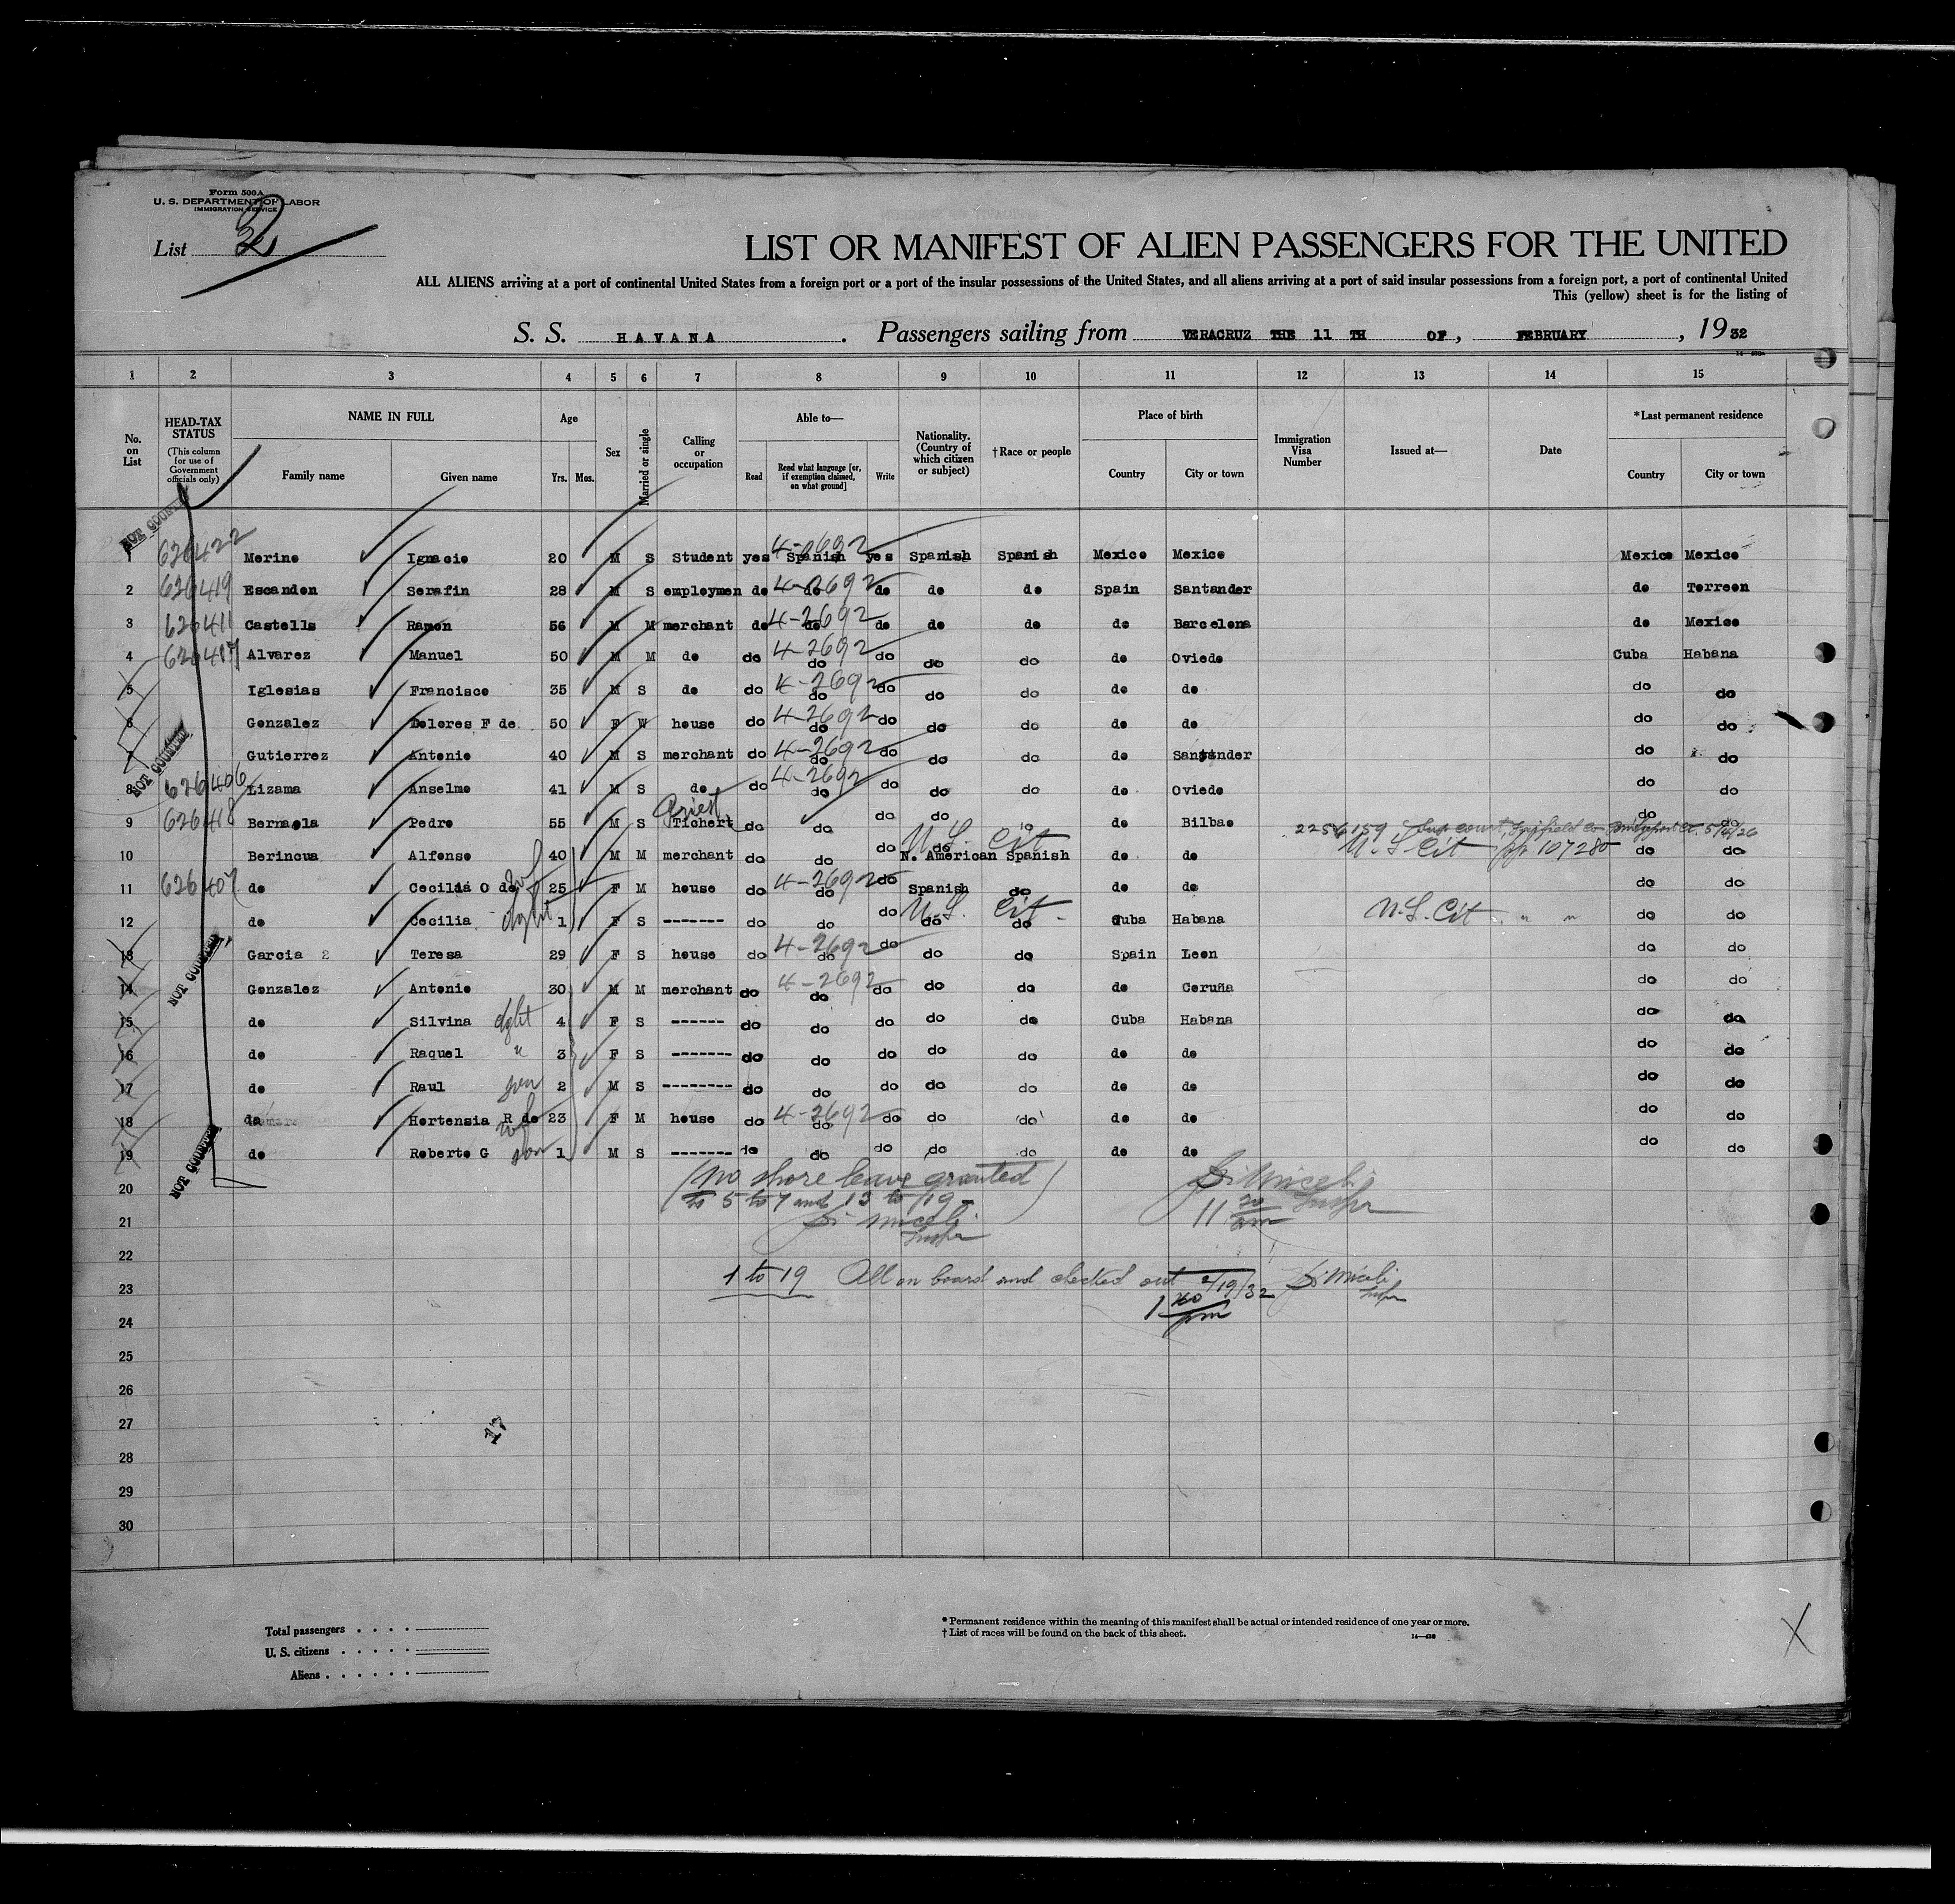 Form 500A
U. S. DEPARTMENT OF LABOR
IMMIGRATION SERVICE
List 2
LIST OR MANIFEST OF ALIEN PASSENGERS FOR THE UNITED
ALL ALIENS arriving at a port of continental United States from a foreign port or a port of the insular possessions of the United States, and all aliens arriving at a port of said insular possessions from a foreign port, a port of continental United
This (yellow) sheet is for the listing of
S. S. HAVANA. Passengers sailing from VERACRUZ THE 11 TH OF, FEBRUARY, 1932
1 2 3 4 5 6 7 8 9 10 11 12 13 14 15
No. on List
HEAD-TAX STATUS (This column for use of Government officials only)
NAME IN FULL Family name Given name
Age Yrs. Mos.
Sex
Married or single
Calling or occupation
Able to— Read Read what language [or, if exemption claimed, on what ground] Write
Nationality. (Country of which citizen or subject)
†Race or people
Place of birth Country City or town
Immigration Visa Number
Issued at—
Date
*Last permanent residence Country City or town
NOT COUNTED
1 626422 Merine Ignacie 20 M S Student yes Spanish 4-2692 yes Spanish Spanish Mexice Mexice Mexice Mexice
2 626419 Escanden Serafin 28 M S employmen de de 4-2692 de de de Spain Santander de Terreen
3 626411 Castells Ramen 56 M M merchant de de 4-2692 de de de de Barcelena de Mexice
4 626417 Alvarez Manuel 50 M M de do do 4-2692 do do do de Oviede Cuba Habana
5 Iglesias Francisce 35 M S de do do 4-2692 do do do de de do do
6 Genzalez Deleres F de 50 F W heuse do do 4-2692 do do do de de do do
7 Gutierrez Antenie 40 M S merchant do do 4-2692 do do do de Santander do do
NOT COUNTED
8 626406 Lizama Anselme 41 M S de do do 4-2692 do do do de Oviede do do
9 626418 Bernaola Pedre 55 M S Tichert Priest do do do do do de Bilbae do do
10 Berincua Alfense 40 M M merchant do do do N. American Spanish U. S. Cit de de 2256159 Sup court, Fairfield Co Bridgeport Ct. 5/ /26 U. S Cit pp 107280 do do
11 626407 de Cecilia O de wf 25 F M heuse do do 4-2692 do Spanish do de de do do
12 de Cecilia dght 1 F S ------- do do do do do U. S. Cit. Cuba Habana U. S. Cit. " " do do
13 Garcia 2 Teresa 29 F S heuse do do 4-2692 do do do Spain Leen do do
NOT COUNTED
14 Genzalez Antenie 30 M M merchant do do 4-2692 do do do de Ceruña do do
15 de Silvina dght 4 F S ------- do do do do do Cuba Habana do do
16 de Raquel " 3 F S -------- do do do do do de de do do
17 de Raul son 2 M S -------- do do do do do de de do do
18 de Hertensia R de wf 23 F M heuse do do 4-2692 do do do de de do do
19 de Roberte G son 1 M S -------- do do do do do de de do do
NOT COUNTED
20 (No shore leave granted)
to 5 to 7 and 13 to 19
Miceli Inspr
Miceli Inspr
11 20 am
21
22
23 1 to 19 All on board and checked out 2/19/32 Miceli Inspr
1 pm
24
25
26
27
17
28
29
30
Total passengers . . . .
U. S. citizens . . . . .
Aliens . . . . . .
* Permanent residence within the meaning of this manifest shall be actual or intended residence of one year or more.
† List of races will be found on the back of this sheet.
X